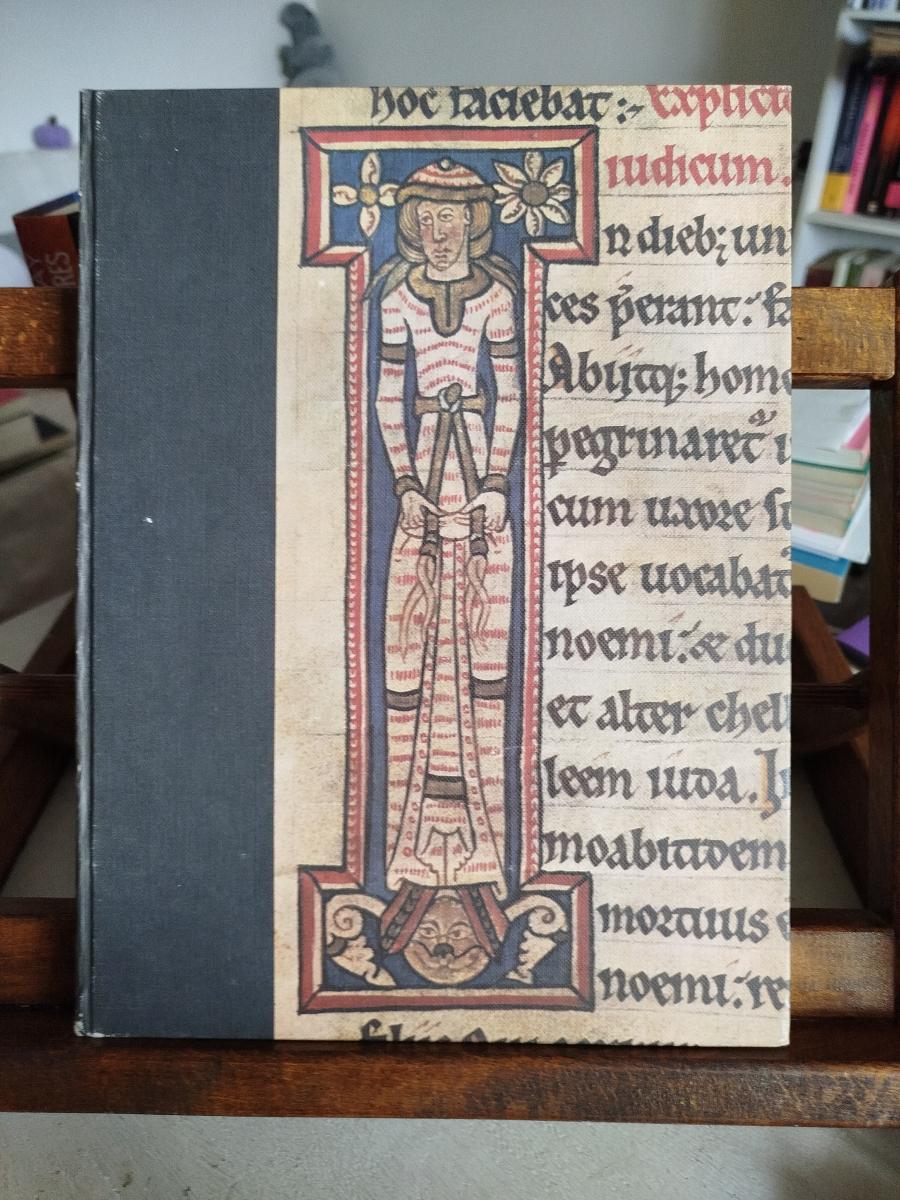 hoc faciebat:- Explicit
iudicum.
n dieb; un
ces p̄erant:
Abiitq; home
pegrinaret
cum uxore su
ipse uocabat
noemi: & du
et alter chel
leem iuda. h
moabitidem
mortuus e
noemi: re